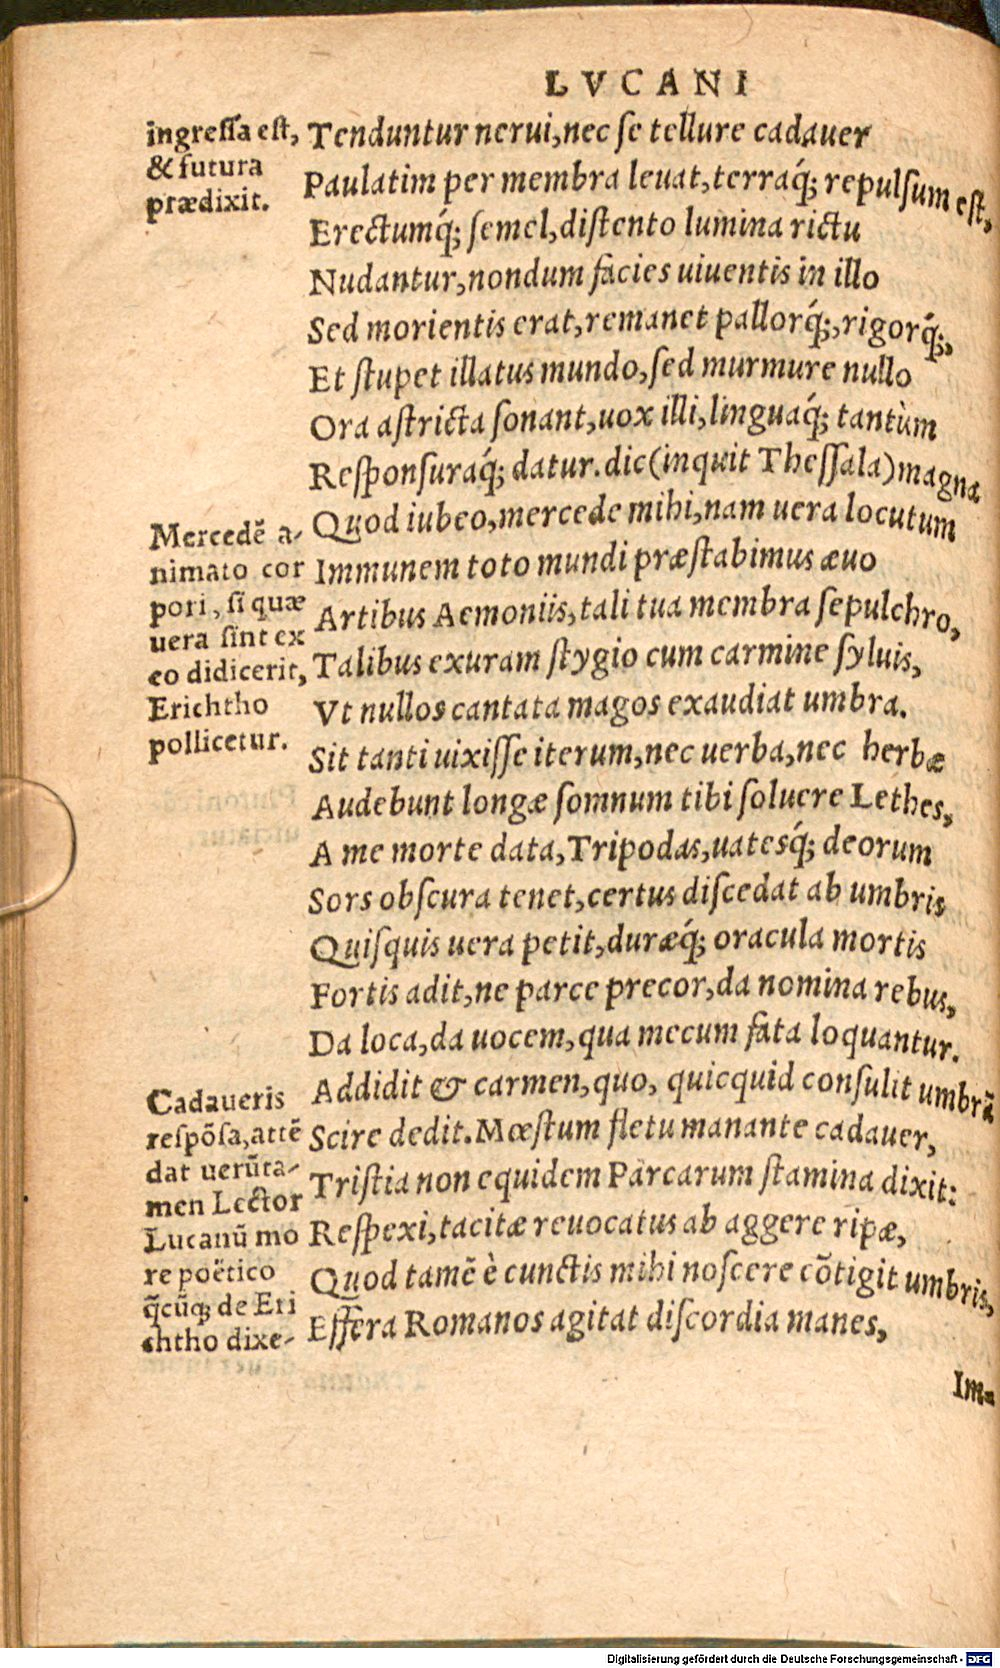 LVCANI
ingreſſa eſt,
& futura
prædixit.
Tenduntur nerui, nec ſe tellure cadauer
Paulatim per membra leuat, terraq́; repulſum eſt,
Erectumq́; ſemel, diſtento lumina rictu
Nudantur, nondum facies uiuentis in illo
Sed morientis erat, remanet pallorq́;, rigorq́;,
Et ſtupet illatus mundo, ſed murmure nullo
Ora aſtricta ſonant, uox illi, linguaq́; tantùm
Reſponſuraq́; datur. dic (inquit Theſſala) magna
Quod iubeo, mercede mihi, nam uera locutum
Immunem toto mundi præſtabimus æuo
Artibus Aemoniis, tali tua membra ſepulchro,
Talibus exuram ſtygio cum carmine ſyluis,
Vt nullos cantata magos exaudiat umbra.
Sit tanti uixiſſe iterum, nec uerba, nec herbæ
Audebunt longæ ſomnum tibi ſoluere Lethes,
A me morte data, Tripodas, uatesq́; deorum
Sors obſcura tenet, certus diſcedat ab umbris
Quiſquis uera petit, duræq́; oracula mortis
Fortis adit, ne parce precor, da nomina rebus,
Da loca, da uocem, qua mecum fata loquantur.
Addidit & carmen, quo, quicquid conſulit umbrã
Scire dedit. Mœſtum fletu manante cadauer,
Triſtia non equidem Parcarum ſtamina dixit:
Reſpexi, tacitæ reuocatus ab aggere ripæ,
Quod tamẽ è cunctis mihi noſcere cõtigit umbris,
Effera Romanos agitat diſcordia manes,
Mercedẽ a-
nimato cor
pori, ſi quæ
uera ſint ex
eo didicerit,
Erichtho
pollicetur.
Cadaueris
reſpõſa, attẽ
dat uerũta-
men Lector
Lucanũ mo
re poëtico
q̃cũq; de Eri
chtho dixe-
Im-
Digitalisierung gefördert durch die Deutsche Forschungsgemeinschaft - DFG